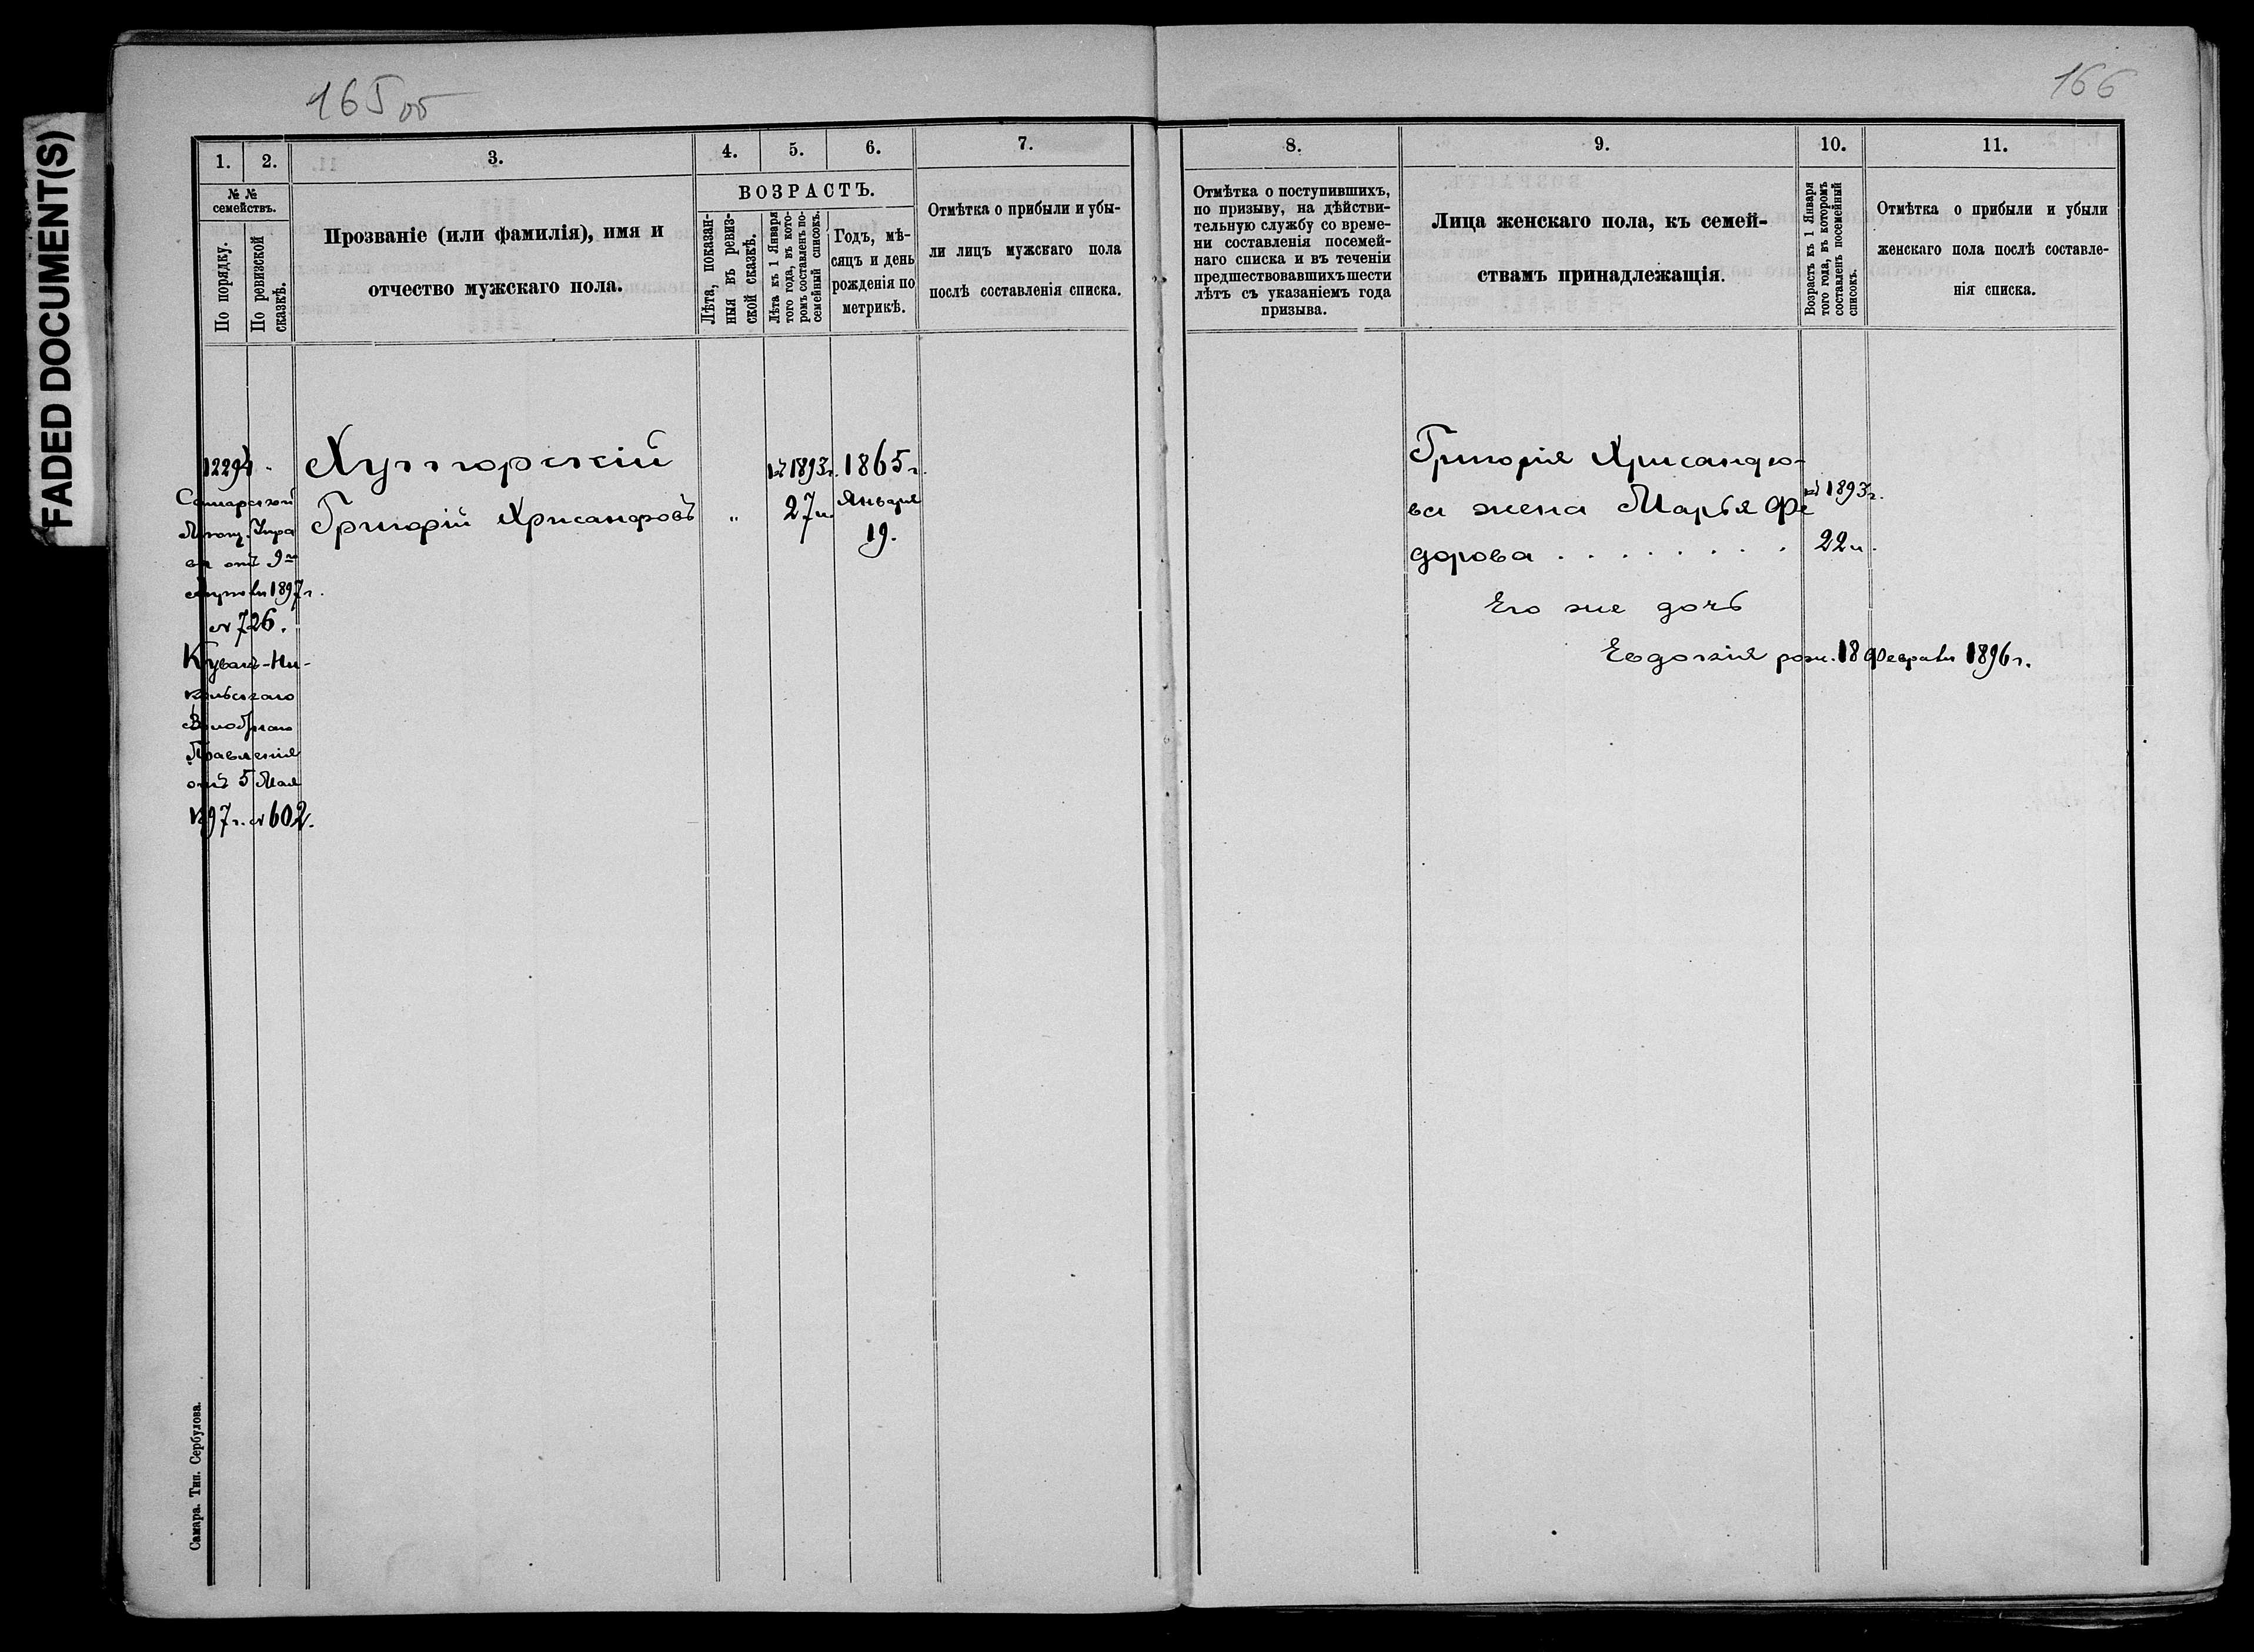 FADED DOCUMENT(S)
165 об
166
1.
2.
3.
4.
5.
6.
7.
№ №
семействъ.
По порядку.
По ревизской
сказкѣ.
Прозваніе (или фамилія), имя и
отчество мужскаго пола.
ВОЗРАСТЪ.
Лѣта, показан-
ныя въ ревиз-
ской сказкѣ.
Лѣта къ 1 Января
того года, въ кото-
ромъ составленъ по-
семейный списокъ.
Годъ, мѣ-
сяцъ и день
рожденія по
метрикѣ.
Отмѣтка о прибыли и убы-
ли лицъ мужскаго пола
послѣ составленія списка.
12294
Самарской
Мѣщ. Упра
вы отъ 9го
1897г.
№ 726.
Куванъ-Ни-
кольскаго
Волостнаго
Правленія
отъ 5 Мая
1897г. № 602.
Хуторскій
Григорій Хрисанфовъ
"
1893г.
27 л.
1865г.
Января
19.
Самара. Тип. Сербулова.
8.
9.
10.
11.
Отмѣтка о поступившихъ,
по призыву, на дѣйстви-
тельную службу со време-
ни составленія посемей-
наго списка и въ теченіи
предшествовавшихъ шести
лѣтъ съ указаніемъ года
призыва.
Лица женскаго пола, къ семей-
ствамъ принадлежащія.
Возрастъ къ 1 Января
того года, въ которомъ
составленъ посемейный
списокъ.
Отмѣтка о прибыли и убыли
женскаго пола послѣ составле-
нія списка.
Григорія Хрисанфо-
ва жена Марья Фе
дорова . . . . . . . .
1893г.
22 л.
Его же дочь
Евдокія рож. 18 Февраля 1896г.